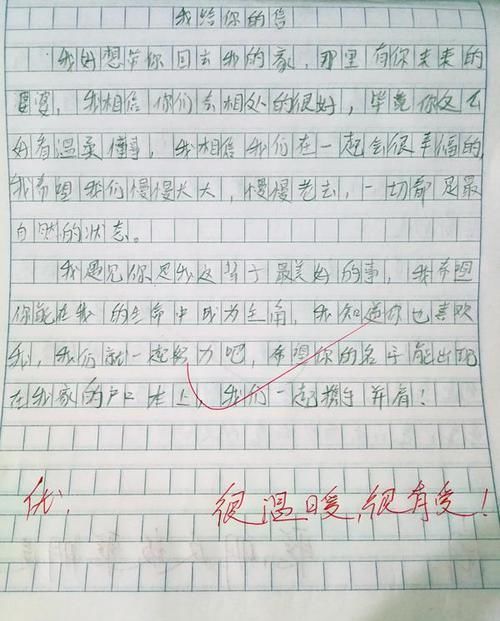 我给你的信
我好想带你回去我的家,那里有你未来的
婆婆,我相信你们会相处的很好,毕竟你这么
好看温柔懂事,我相信我们在一起会很幸福的,
我希望我们慢慢长大,慢慢老去,一切都是最
自然的状态。
我遇见你是我这辈子最美好的事,我希望
你能在我的生命中成为主角,我知道你也喜欢
我,我们就一起努力吧,希望你的名字能出现
在我家的户口本上,我们一起携手并肩!
优,
很温暖,很有爱!